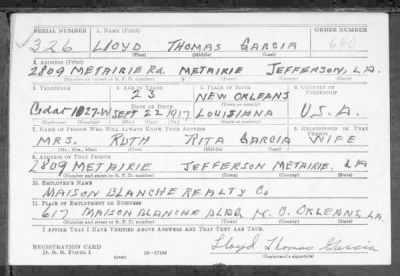 SERIAL NUMBER 1. NAME (Print) ORDER NUMBER
326 LLOYD THOMAS GARCIA 640
(First) (Middle) (Last)
2. ADDRESS (Print)
2809 METAIRIE Rd METAIRIE JEFFERSON, LA.
(Number and street or R. F. D. number) (Town) (County) (State)
3. TELEPHONE 4. AGE IN YEARS 5. PLACE OF BIRTH 6. COUNTRY OF CITIZENSHIP
23 NEW ORLEANS
DATE OF BIRTH (Town or county)
Cedar 1027-W SEPT 22 1917 LOUISIANA U.S.A.
(Exchange) (Number) (Mo.) (Day) (Yr.) (State or country)
7. NAME OF PERSON WHO WILL ALWAYS KNOW YOUR ADDRESS 8. RELATIONSHIP OF THAT PERSON
MRS. RUTH RITA GARCIA WIFE
(Mr., Mrs., Miss) (First) (Middle) (Last)
9. ADDRESS OF THAT PERSON
2809 METAIRIE JEFFERSON METAIRIE, LA
(Number and street or R. F. D. number) (Town) (County) (State)
10. EMPLOYER'S NAME
MAISON BLANCHE REALTY Co
11. PLACE OF EMPLOYMENT OR BUSINESS
617 MAISON BLANCHE BLDG, N. O. ORLEANS, LA
(Number and street or R. F. D. number) (Town) (County) (State)
I AFFIRM THAT I HAVE VERIFIED ABOVE ANSWERS AND THAT THEY ARE TRUE.
REGISTRATION CARD Lloyd Thomas Garcia
D. S. S. Form 1 (over) 16—17105 (Registrant's signature)